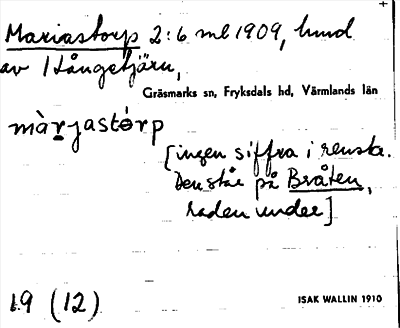 Mariastorp 2:6 ml 1909, lund
av Hångetjärn,
Gräsmarks sn, Fryksdals hd, Värmlands län
màrjastórp
[ingen siffra i renskr.
Den står på Bråten,
raden under]
19 (12)
ISAK WALLIN 1910